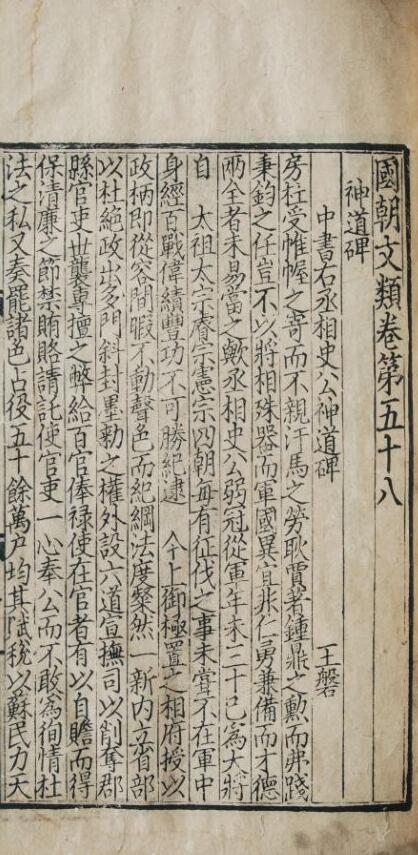 國朝文類卷第五十八
神道碑
中書右丞相史公神道碑 王磐
房杜受帷幄之寄而不親汗馬之勞耿賈著鍾鼎之勲而弗踐
秉鈞之任豈不以將相殊器而軍國異宜非仁勇兼備而才德
兩全者未易當之歟丞相史公弱冠從軍年未二十已為大將
自 太祖太宗睿宗憲宗四朝每有征伐之事未嘗不在軍中
身經百戰偉績豐功不可勝紀逮 今上御極置之相府授以
政柄即從容閒暇不動聲色而紀綱法度粲然一新内立省部
以杜絶政出多門斜封墨勑之權外設六道宣撫司以削奪郡
縣官吏世襲專擅之弊給百官俸禄使在官者有以自贍而得
保清廉之節禁賄賂請託使官吏一心奉公而不敢為徇情枉
法之私又奏罷諸色占役五十餘萬户均其賦稅以蘇民力天